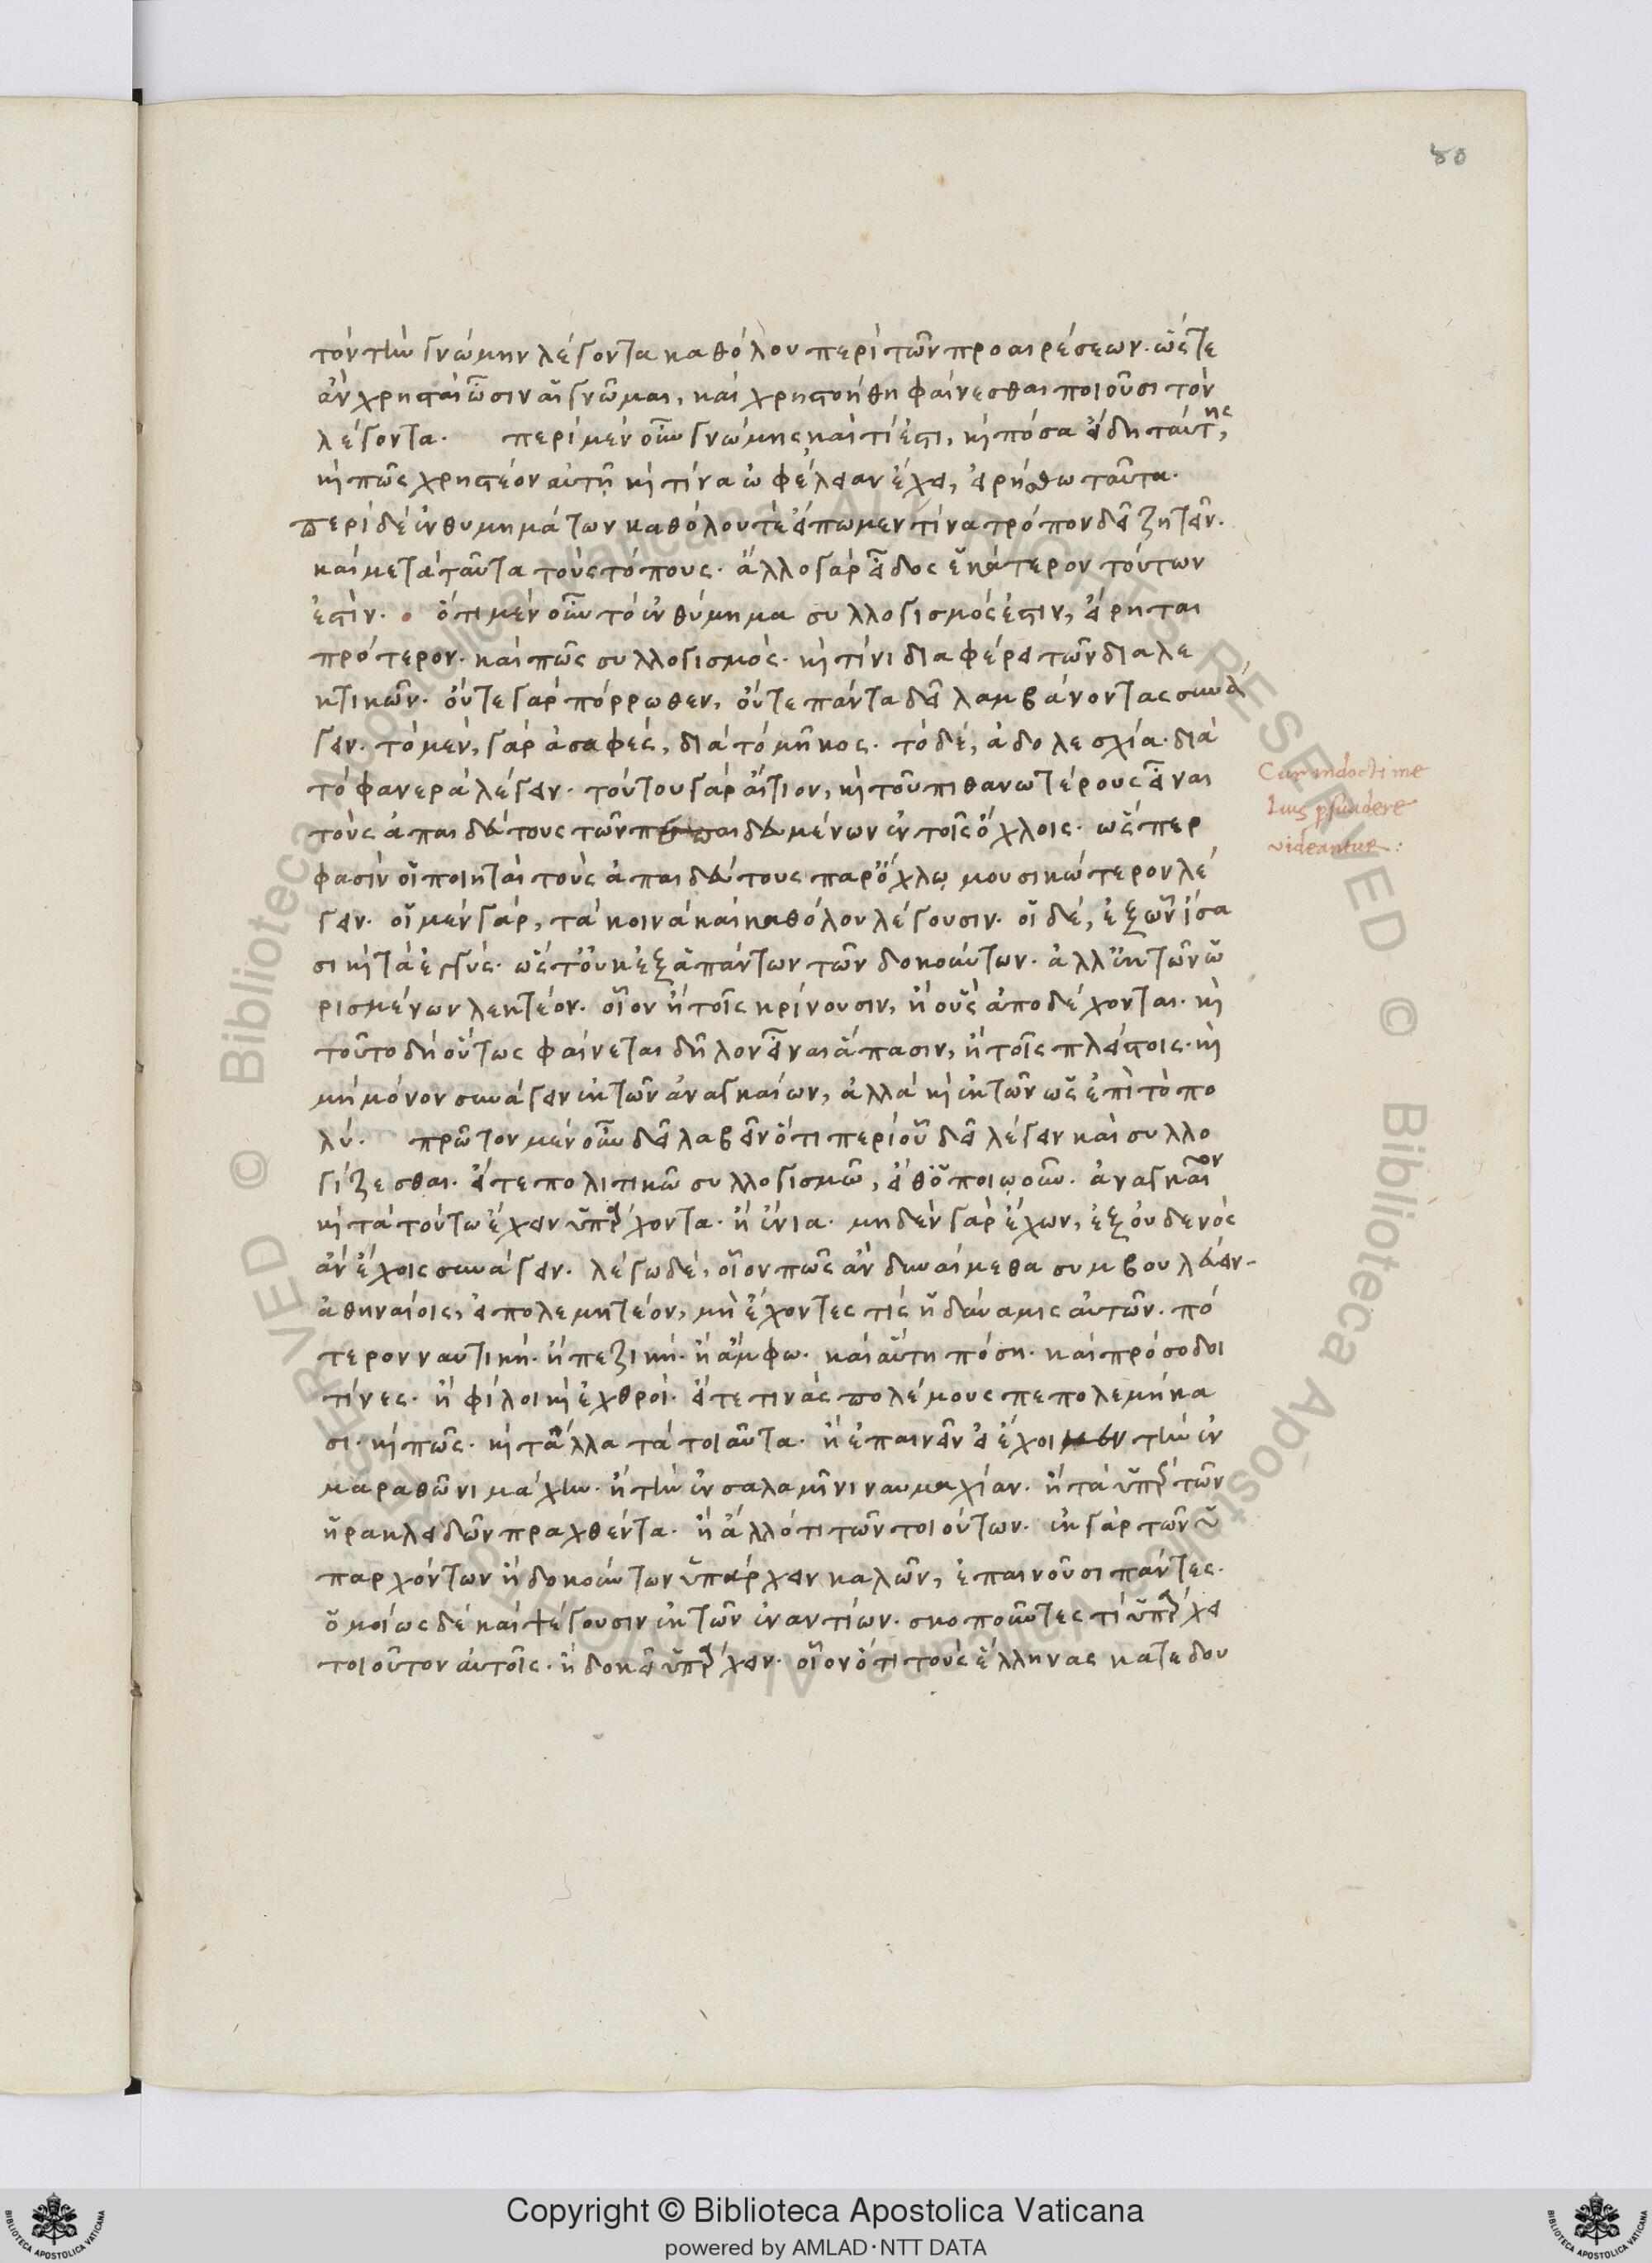 80
τὸν τὴν γνώμην λέγοντα καθόλου περὶ τῶν προαιρέσεων. ὥστε
ἂν χρησταὶ ὦσιν αἱ γνῶμαι, καὶ χρηστοήθη φαίνεσθαι ποιοῦσι τὸν
λέγοντα. περὶ μὲν οὖν γνώμης καὶ τί ἐστι, καὶ πόσα εἴδη ταύτης,
καὶ πῶς χρηστέον αὐτῇ καὶ τίνα ὠφέλειαν ἔχει, εἰρήσθω ταῦτα.
περὶ δὲ ἐνθυμημάτων καθόλου τὲ εἴπωμεν τίνα τρόπον δεῖ ζητεῖν.
καὶ μετὰ ταῦτα τοὺς τόπους. ἄλλο γὰρ εἶδος ἑκάτερον τούτων
ἐστίν. ὅτι μὲν οὖν τὸ ἐνθύμημα συλλογισμός ἐστιν, εἴρηται
πρότερον. καὶ πῶς συλλογισμός. καὶ τίνι διαφέρει τῶν διαλε
κτικῶν. οὔτε γὰρ πόρρωθεν, οὔτε πάντα δεῖ λαμβάνοντας συνά
γειν. τὸ μὲν, γὰρ ἀσαφές, διὰ τὸ μῆκος. τὸ δέ, ἀδολεσχία. διὰ
τὸ φανερὰ λέγειν. τούτου γὰρ αἴτιον, καὶ τοῦ πιθανωτέρους εἶναι
τοὺς ἀπαιδεύτους τῶν πεπαιδευμένων ἐν τοῖς ὄχλοις. ὥσπερ
φασὶν οἱ ποιηταὶ τοὺς ἀπαιδεύτους παρ' ὄχλῳ μουσικώτερον λέ
γειν. οἱ μὲν γάρ, τὰ κοινὰ καὶ καθόλου λέγουσιν. οἱ δέ, ἐξ ὧν ἴσα
σι καὶ τὰ ἐγγύς. ὥστ' οὐκ ἐξ ἁπάντων τῶν δοκούντων. ἀλλ' ἐκ τῶν ὡ
ρισμένων λεκτέον. οἷον ἢ τοῖς κρίνουσιν, ἢ οὓς ἀποδέχονται. καὶ
τοῦτο δὴ οὕτως φαίνεται δῆλον εἶναι ἅπασιν, ἢ τοῖς πλείστοις. καὶ
μὴ μόνον συνάγειν ἐκ τῶν ἀναγκαίων, ἀλλὰ καὶ ἐκ τῶν ὡς ἐπὶ τὸ πο
λύ. πρῶτον μὲν οὖν δεῖ λαβεῖν ὅτι περὶ οὗ δεῖ λέγειν καὶ συλλο
γίζεσθαι. εἴτε πολιτικῷ συλλογισμῷ, εἴθ' ὁποιῳοῦν. ἀναγκαῖον
καὶ τὰ τούτω ἔχειν ὑπάρχοντα. ἢ ἔνια. μηδὲν γὰρ ἔχων, ἐξ οὐδενὸς
ἂν ἔχοις συνάγειν. λέγω δέ, οἷον πῶς ἂν δυναίμεθα συμβουλεύειν
ἀθηναίοις, εἰ πολεμητέον, μὴ ἔχοντες τίς ἡ δύναμις αὐτῶν. πό
τερον ναυτική. ἢ πεζική. ἢ ἄμφω. καὶ αὕτη πόση. καὶ πρόσοδοι
τίνες. ἢ φίλοι καὶ ἐχθροί. εἴτε τινὰς πολέμους πεπολεμήκα
σι. καὶ πῶς. καὶ τἆλλα τὰ τοιαῦτα. ἢ ἐπαινεῖν εἰ ἔχοιμεν τὴν ἐν
μαραθῶνι μάχην. ἢ τὴν ἐν σαλαμῖνι ναυμαχίαν. ἢ τὰ ὑπὲρ τῶν
ἡρακλειδῶν πραχθέντα. ἢ ἄλλό τι τῶν τοιούτων. ἐκ γὰρ τῶν ὑ
παρχόντων ἢ δοκούντων ὑπάρχειν καλῶν, ἐπαινοῦσι πάντες.
ὁμοίως δὲ καὶ ψέγουσιν ἐκ τῶν ἐναντίων. σκοποῦντες τί ὑπάρχει
τοιοῦτον αὐτοῖς. ἢ δοκεῖ ὑπάρχειν. οἷον ὅτι τοὺς ἕλληνας κατεδου
Cur indocti me
lius psuadere
videantur:
Copyright © Biblioteca Apostolica Vaticana
powered by AMLAD·NTT DATA